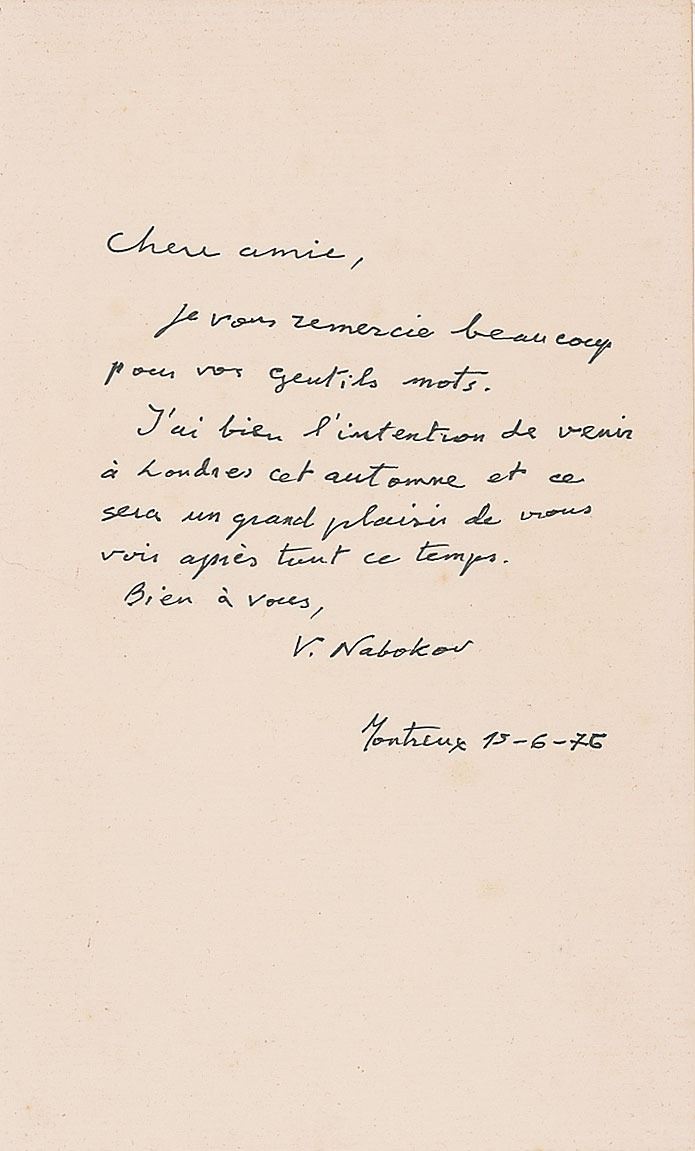 Chere amie,
Je vous remercie beaucoup
pour vos gentils mots.
J'ai bien l'intention de venir
à Londres cet automne et ce
sera un grand plaisir de vous
voir après tout ce temps.
Bien à vous,
V. Nabokov
Montreux 15-6-76